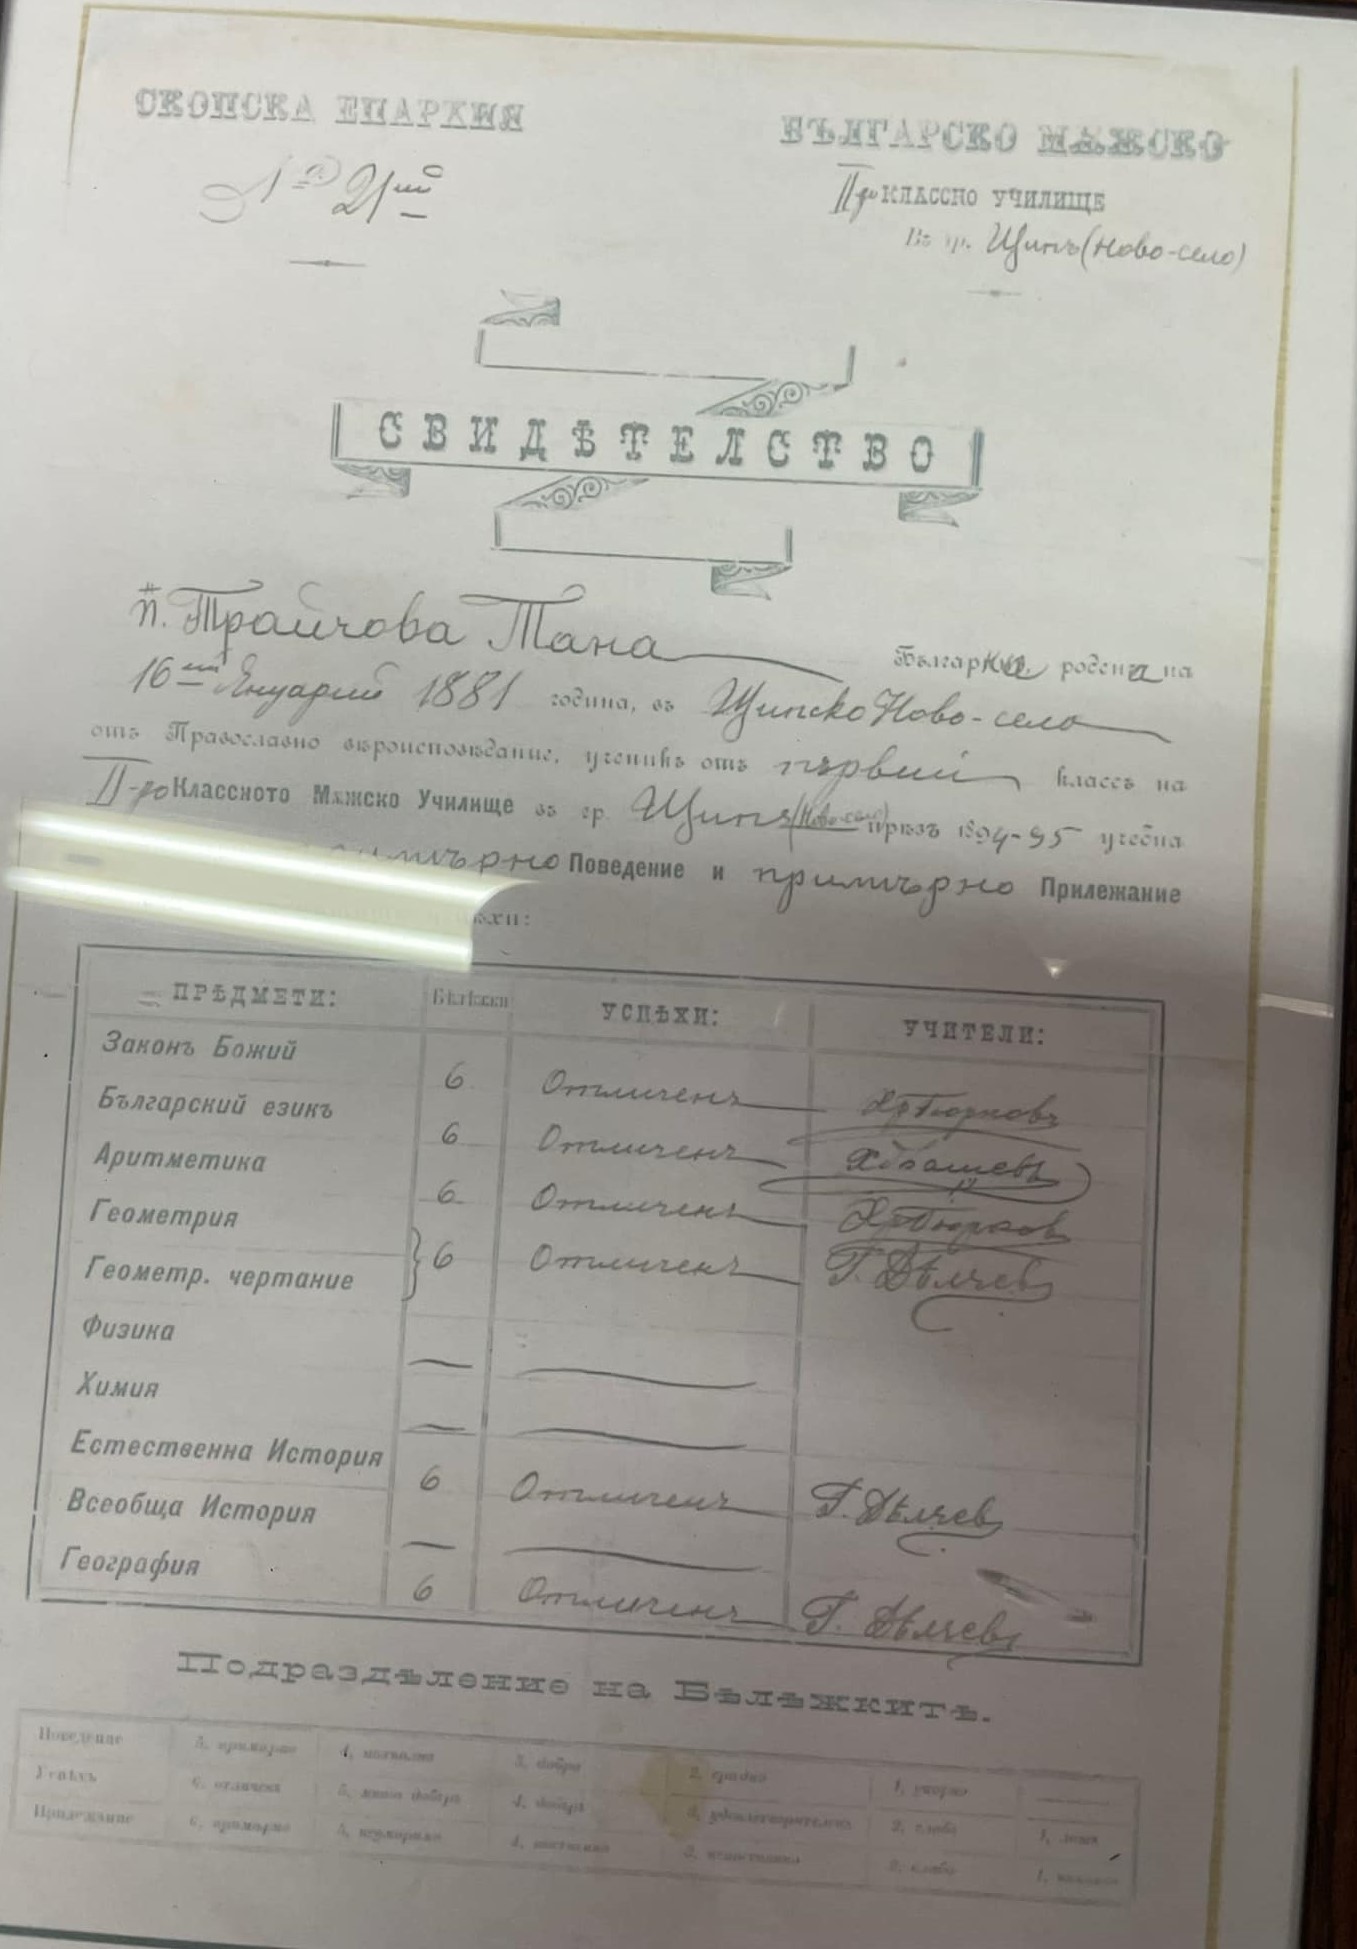 СКОПСКА ЕПАРХИЯ
№ 21ий
БЪЛГАРСКО МѪЖСКО
II-ро КЛАССНО УЧИЛИЩЕ
Въ гр. Щипъ (Ново-село)
СВИДѢТЕЛСТВО
Трайчова Тана Българка родена на
16ий Януарий 1881 година, въ Щипско Ново-село
отъ Православно вѣроисповѣдание, ученикъ отъ първий классъ на
II-ро Классното Мѫжско Училище въ гр. Щипъ (Ново-село) прѣзъ 1894-95 учебна
примѣрно Поведение и примѣрно Прилежание
ПРѢДМЕТИ: Бѣлѣжки УСПѢХИ: УЧИТЕЛИ:
Законъ Божий 6 Отличенъ
Българский езикъ 6 Отличенъ
Аритметика 6 Отличенъ
Геометрия
Геометр. чертание } 6 Отличенъ Г. Дѣлчев
Физика — —
Химия — —
Естественна История 6 Отличенъ Г. Дѣлчев
Всеобща История — —
География 6 Отличенъ Г. Дѣлчев
Подраздѣление на Бѣлѣжкитѣ.
Поведение 5, примѣрно 3, добро 2, средно
Успѣхъ 6, отличенъ 5, много добъръ 4, добъръ 3, удовлетворителенъ 2, слабъ
Прилежание 6, примѣрно 2, слабо